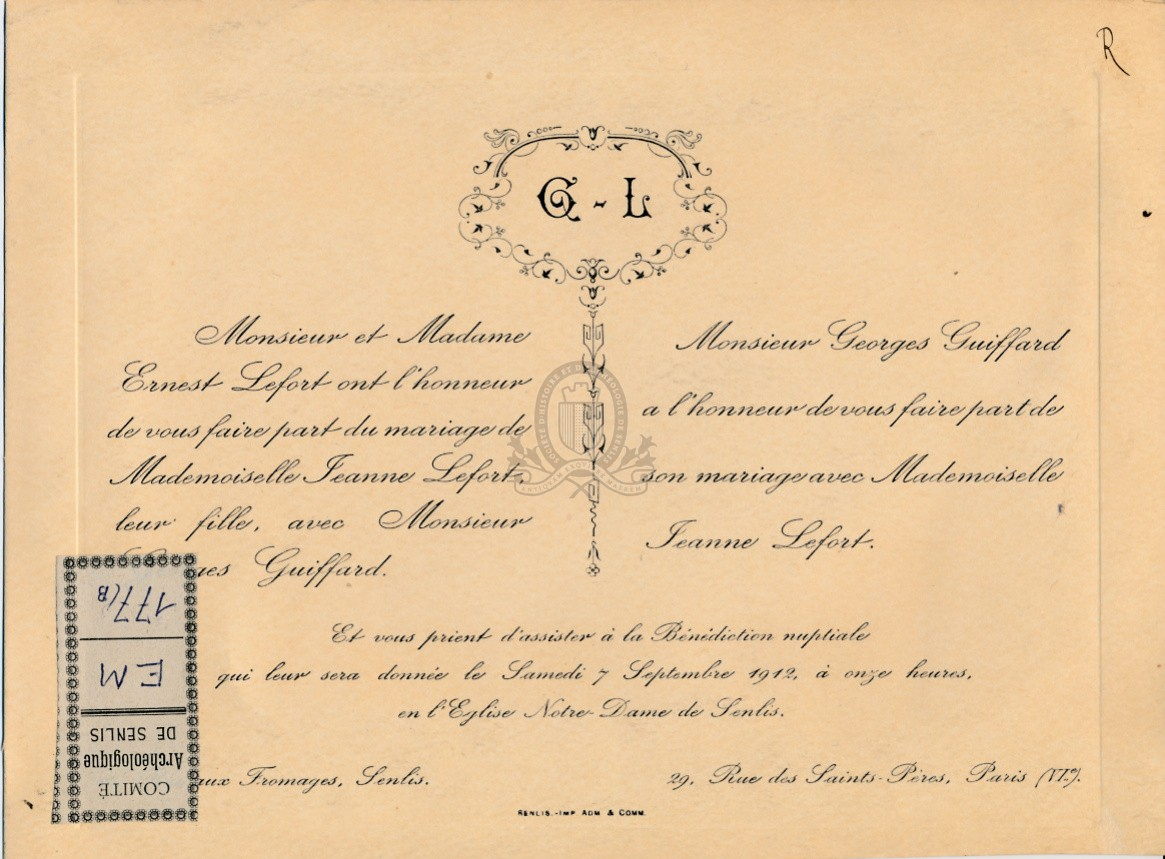 R
G - L
Monsieur et Madame
Ernest Lefort ont l'honneur
de vous faire part du mariage de
Mademoiselle Jeanne Lefort,
leur fille, avec Monsieur
ges Guiffard.
Monsieur Georges Guiffard
a l'honneur de vous faire part de
son mariage avec Mademoiselle
Jeanne Lefort.
Et vous prient d'assister à la Bénédiction nuptiale
qui leur sera donnée le Samedi 7 Septembre 1912, à onze heures,
en l'Eglise Notre-Dame de Senlis.
aux Fromages, Senlis.
29, Rue des Saints-Pères, Paris (VIe).
SENLIS.-IMP. ADM. & COMM.
COMITÉ
Archéologique
DE SENLIS
EM
177/B
SOCIÉTÉ D'HISTOIRE ET D'ARCHÉOLOGIE DE SENLIS